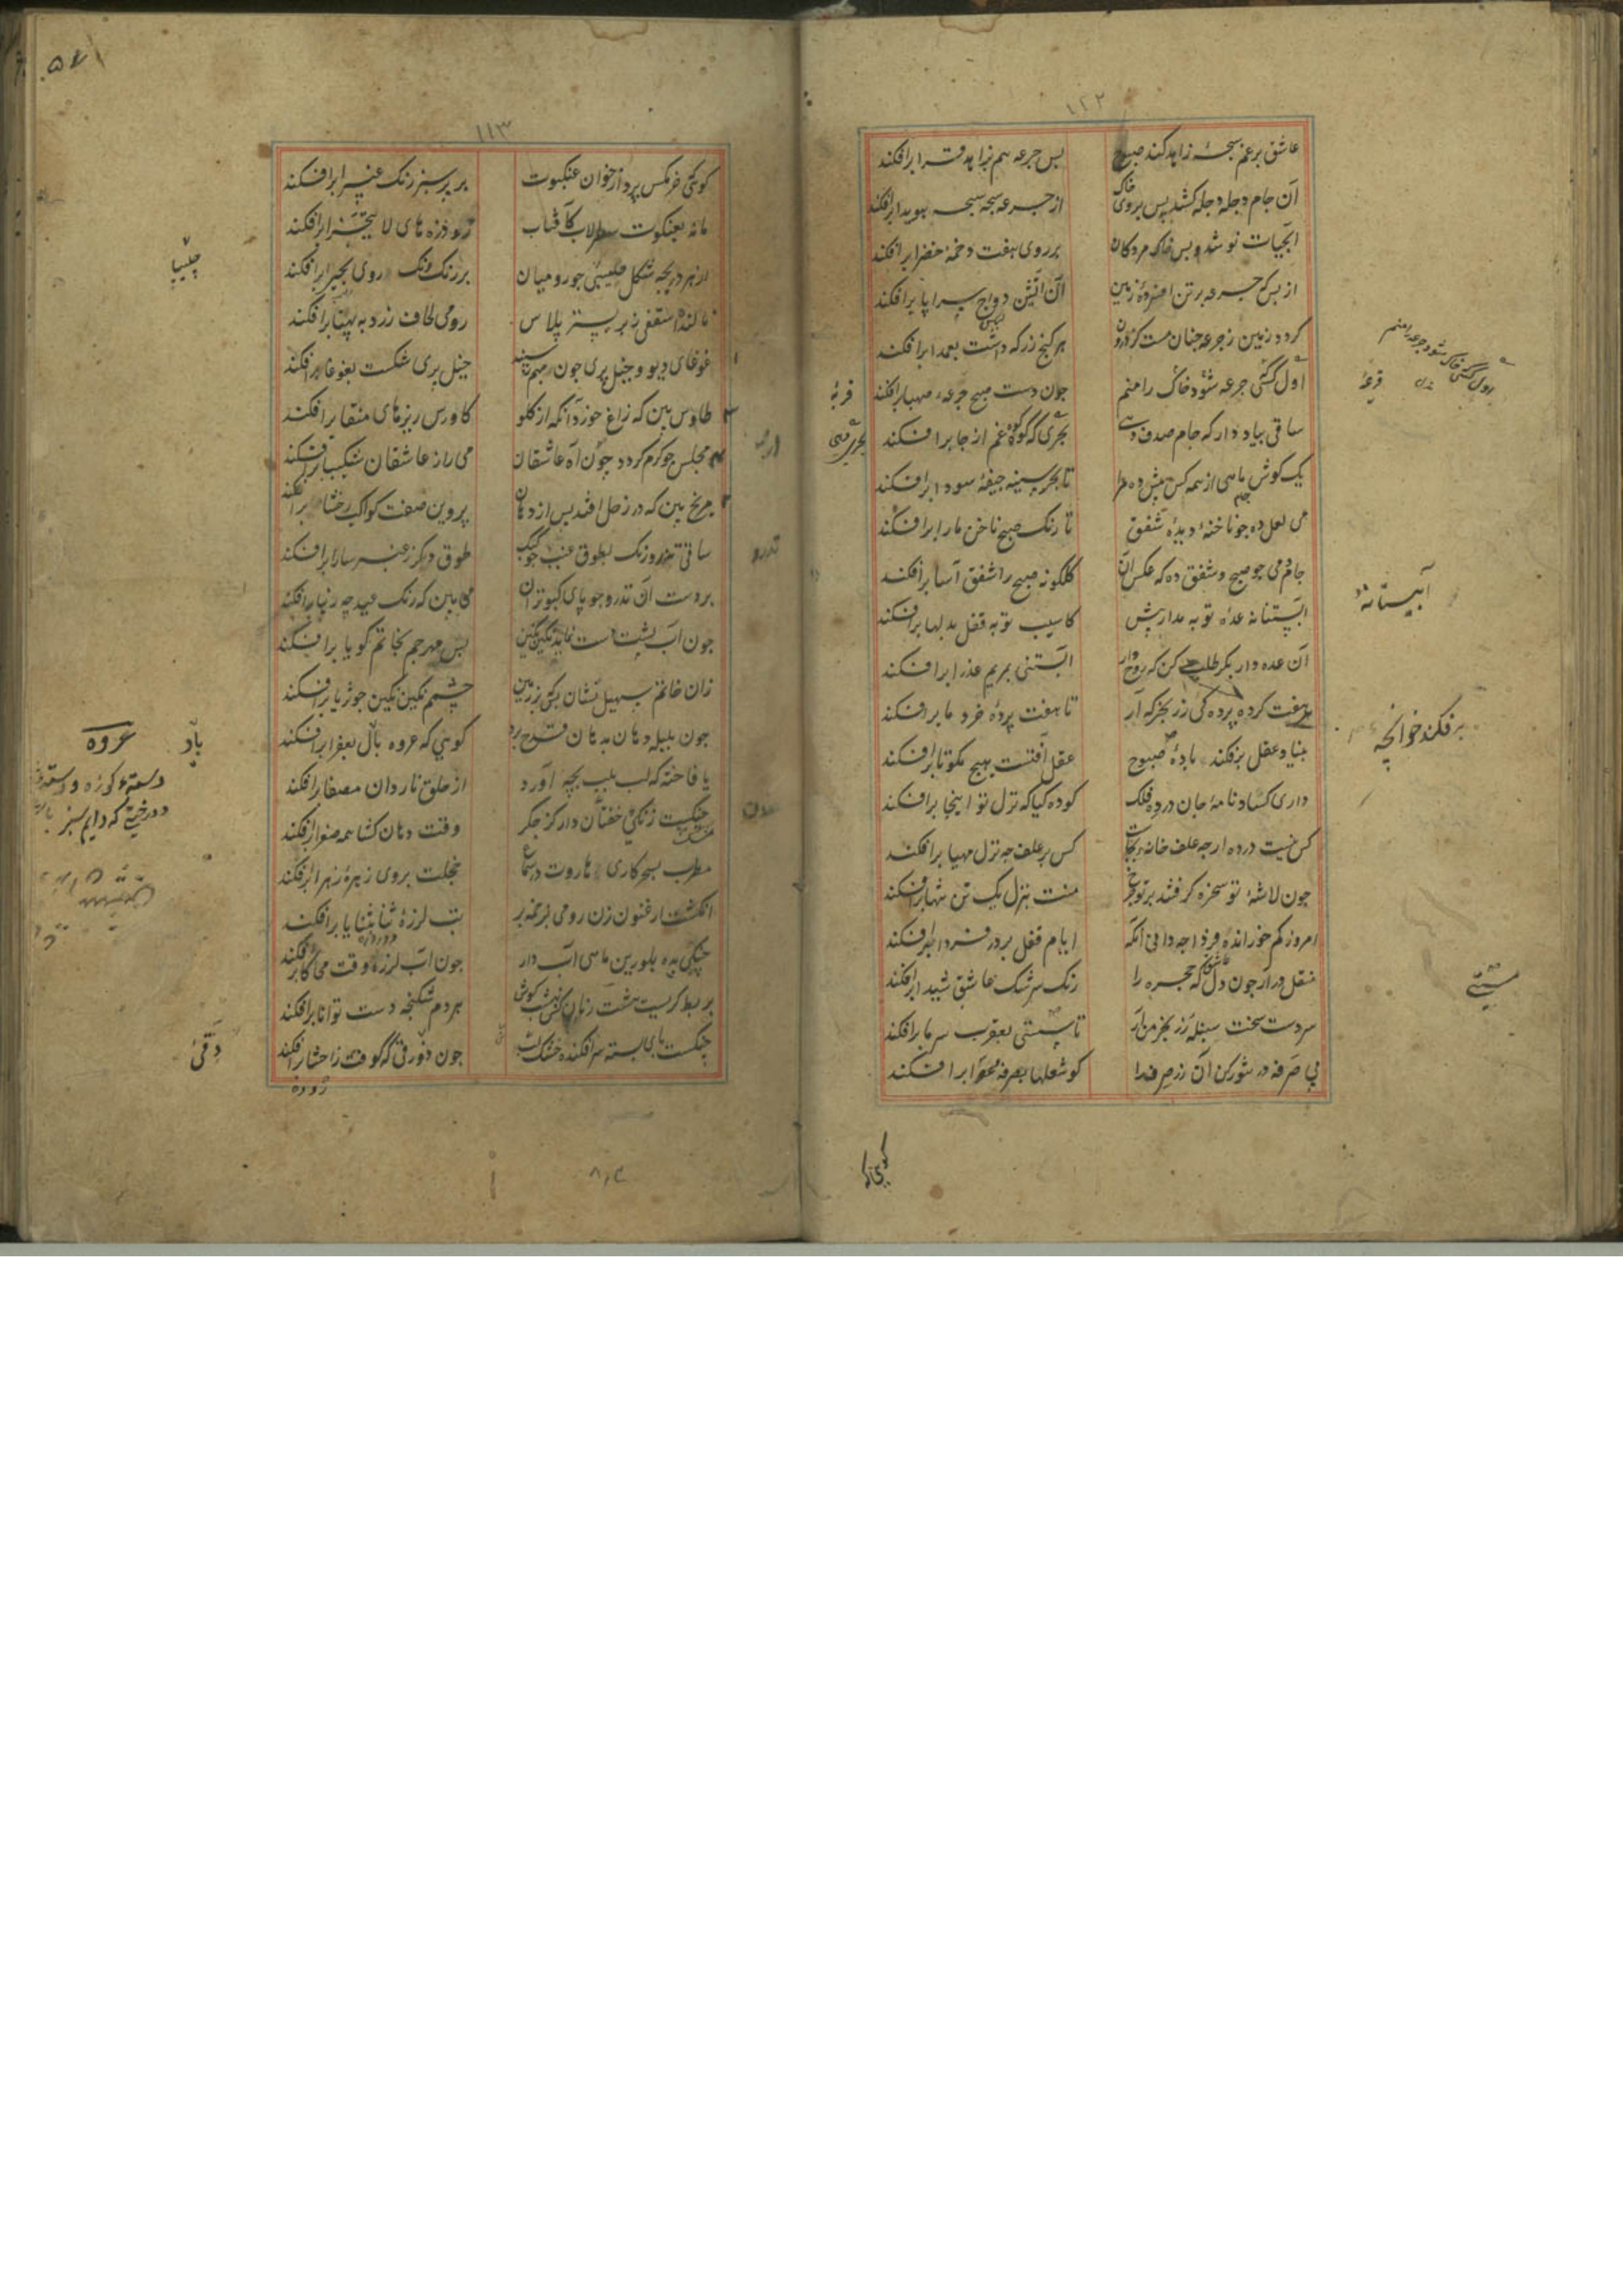 ۱۲۲
عاشق برغم سبحه زاهد کند صبوح
بس جرعه هم بزاهد قرا برافکند
آن جام دجله دجله کشد پس بروی خاک
از جرعه سبحه سبحه هویدا برافکند
آبحیات نوشد و پس خاک مردکان
بر روی هفت دخمهٔ خضرا برافکند
از بس که جرعه بر تن افسردهٔ زمین
آن آتشین دواج سراپا برافکند
کردد زمین ز جرعه چنان مست کز درون
هر کنج زر که داشت بعمدا برافکند
اول کسی جرعه شود خاک را منم
چون دست صبح جرعهٔ صهبا برافکند
ساقی بیاد دار که جام صدف دهی
بحری که کوه غم از جا برافکند
یک کوش ماهی از همه کس بیش ده مرا
تا بحر سینه جیفهٔ سودا برافکند
می لعل ده چو ناخنهٔ دیدهٔ شفق
تا رنک صبح ناخن ما را برافکند
جام می چو صبح و شفق ده که عکس آن
کلکونه صبح را شفق آسا برافکند
آبستنانه عدهٔ توبه مدار پیش
کاسیب توبه قفل بدلها برافکند
آن عده دار بکر طلب کن که روح وار
آبستنی بمریم عذرا برافکند
هر هفت کرده پردکی زر بخرکه آر
تا هفت پردهٔ خرد ما برافکند
بنیاد عقل برفکند بادهٔ صبوح
عقل آفتست هیچ مکو تا برافکند
داری کشاد نامهٔ جان در ده فلک
کو ده کیا که نزل تو اینجا برافکند
کس نیست در ده ارچه علف خانه بجاست
کس بر علف چه نزل مهیا برافکند
چون لاشهٔ تو سخره کرفتند بر تو چرخ
منت بنزل یک تن تنها برافکند
امروز کم خور انده فردا چه دانی آنکه
ایام قفل بر در فردا برافکند
منقل درآر چون دل عاشق که حجره را
رنک سرشک عاشق شیدا برافکند
سردست سخت سنبلهٔ رز بخرمن آر
تا سستی بعقرب سرما برافکند
بی صرفه در تنور کن آن زر صرف را
کو شعلها بصرفه و عوا برافکند
برفکند خوانچه
آبستانه
۱۱۳
کوئی خرمکس پرد از خوان عنکبوت
بر پر سبز رنک عنبرا برافکند
ماند بعنکبوت سطرلاب کآفتاب
زو ذره های لا یتجزا برافکند
از هر دریچه شکل صلیبی چو رومیان
بر رنک رنک روی بحیرا برافکند
ماننده اسقفی ز بر بستر پلاس
رومی لحاف زرد به پهنا برافکند
غوغای دیو و خیل پری چون بهم رسند
خیل پری شکست بغوغا برافکند
طاوس بین که زاغ خورد آنکه از کلو
کاورس ریزهای منقا برافکند
مجلس چو کرم کردد چون آه عاشقان
می راز عاشقان شکیبا برافکند
مریخ بین که در زحل افتد پس از دهان
پروین صفت کواکب رخشا برافکند
ساقی تذرو رنک بطوق غبب چو کبک
طوق دکر ز عنبر سارا برافکند
بر دست آن تذرو چو پای کبوتران
می بین که رنک عید چه زیبا برافکند
چون آب پشت دست نماید نکین نکین
پس مهر جم بخاتم کویا برافکند
زان خاتم سهیل نشان بین که بر زمین
چشم نکین نکین چو ثریا برافکند
چون بلبله دهان به دهان قدح برد
کوئی که عروه بال بعفرا برافکند
یا فاخته که لب بلب بچه آورد
از حلق ناردان مصفا برافکند
وقت دهان کشا همه صفرا برافکند
مطرب بسحر کاری هاروت در سماع
خجلت بروی زهرهٔ زهرا برافکند
انکشت ارغنون زن رومی بزخمه بر
تب لرزهٔ تناتنایا برافکند
چنکی بده بلورین ماهی آب دار
چون آب لرزه وقت محاکا برافکند
بربط کریست هشت زبان کش بهشت کوش
هر دم شکنجه دست توانا برافکند
چنکست پای بسته سرافکنده خشک تن
چون زورقی که کوشت ز احشا برافکند
چلیپا
عروه
باد
دسته کوزه و دسته
درختی که دایم سبز
تذرو